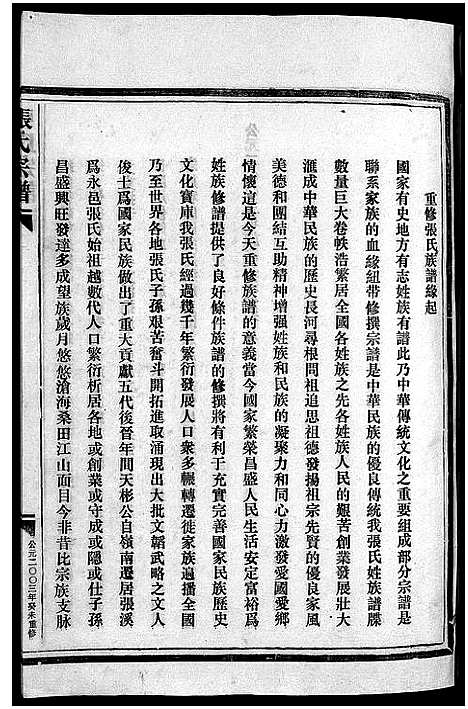 重修張氏族譜緣起
國家有史地方有志姓族有譜此乃中華傳統文化之重要組成部分宗譜是
聯系家族的血緣紐帶修撰宗譜是中華民族的優良傳統我張氏姓族譜牒
數量巨大卷帙浩繁居全國各姓族之先各姓族人民的艱苦創業發展壯大
滙成中華民族的歷史長河尋根問祖追思祖德發揚祖宗先賢的優良家風
美德和團結互助精神增强姓族和民族的凝聚力和同心力激發愛國愛鄉
情懷這是今天重修族譜的意義當今國家繁榮昌盛人民生活安定富裕爲
姓族修譜提供了良好條件族譜的修撰將有利于充實完善國家民族歷史
文化寶庫我張氏經過幾千年繁衍發展人口衆多輾轉遷徙家族遍播全國
乃至世界各地張氏子孫艱苦奮斗開拓進取涌現出大批文韜武略之文人
俊士爲國家民族做出了重大貢獻五代後晉年間天彬公自嶺南遷居張溪
爲永邑張氏始祖越數代人口繁衍析居各地或創業或守成或隱或仕子孫
昌盛興旺發達多成望族歲月悠悠滄海桑田江山面目今非昔比宗族支脉
張氏宗譜
公元二〇〇三年癸未重修